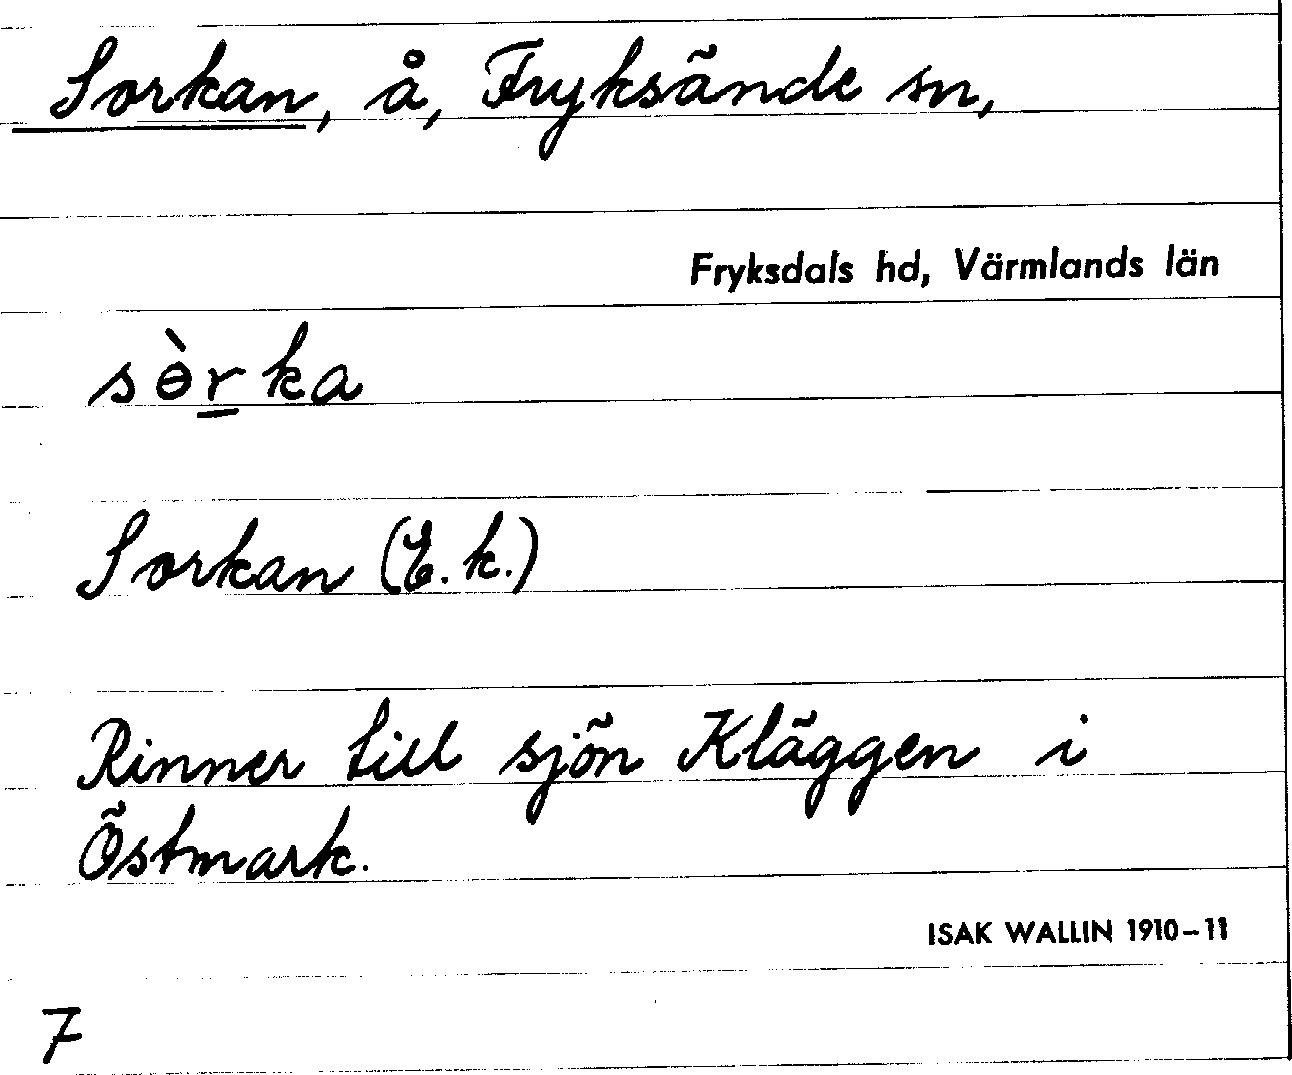 Sorkan, å, Fryksände sn,
Fryksdals hd, Värmlands län
sɵ̀r̲ka
Sorkan (E.k.)
Rinner till sjön Kläggen i
Östmark.
ISAK WALLIN 1910–11
7